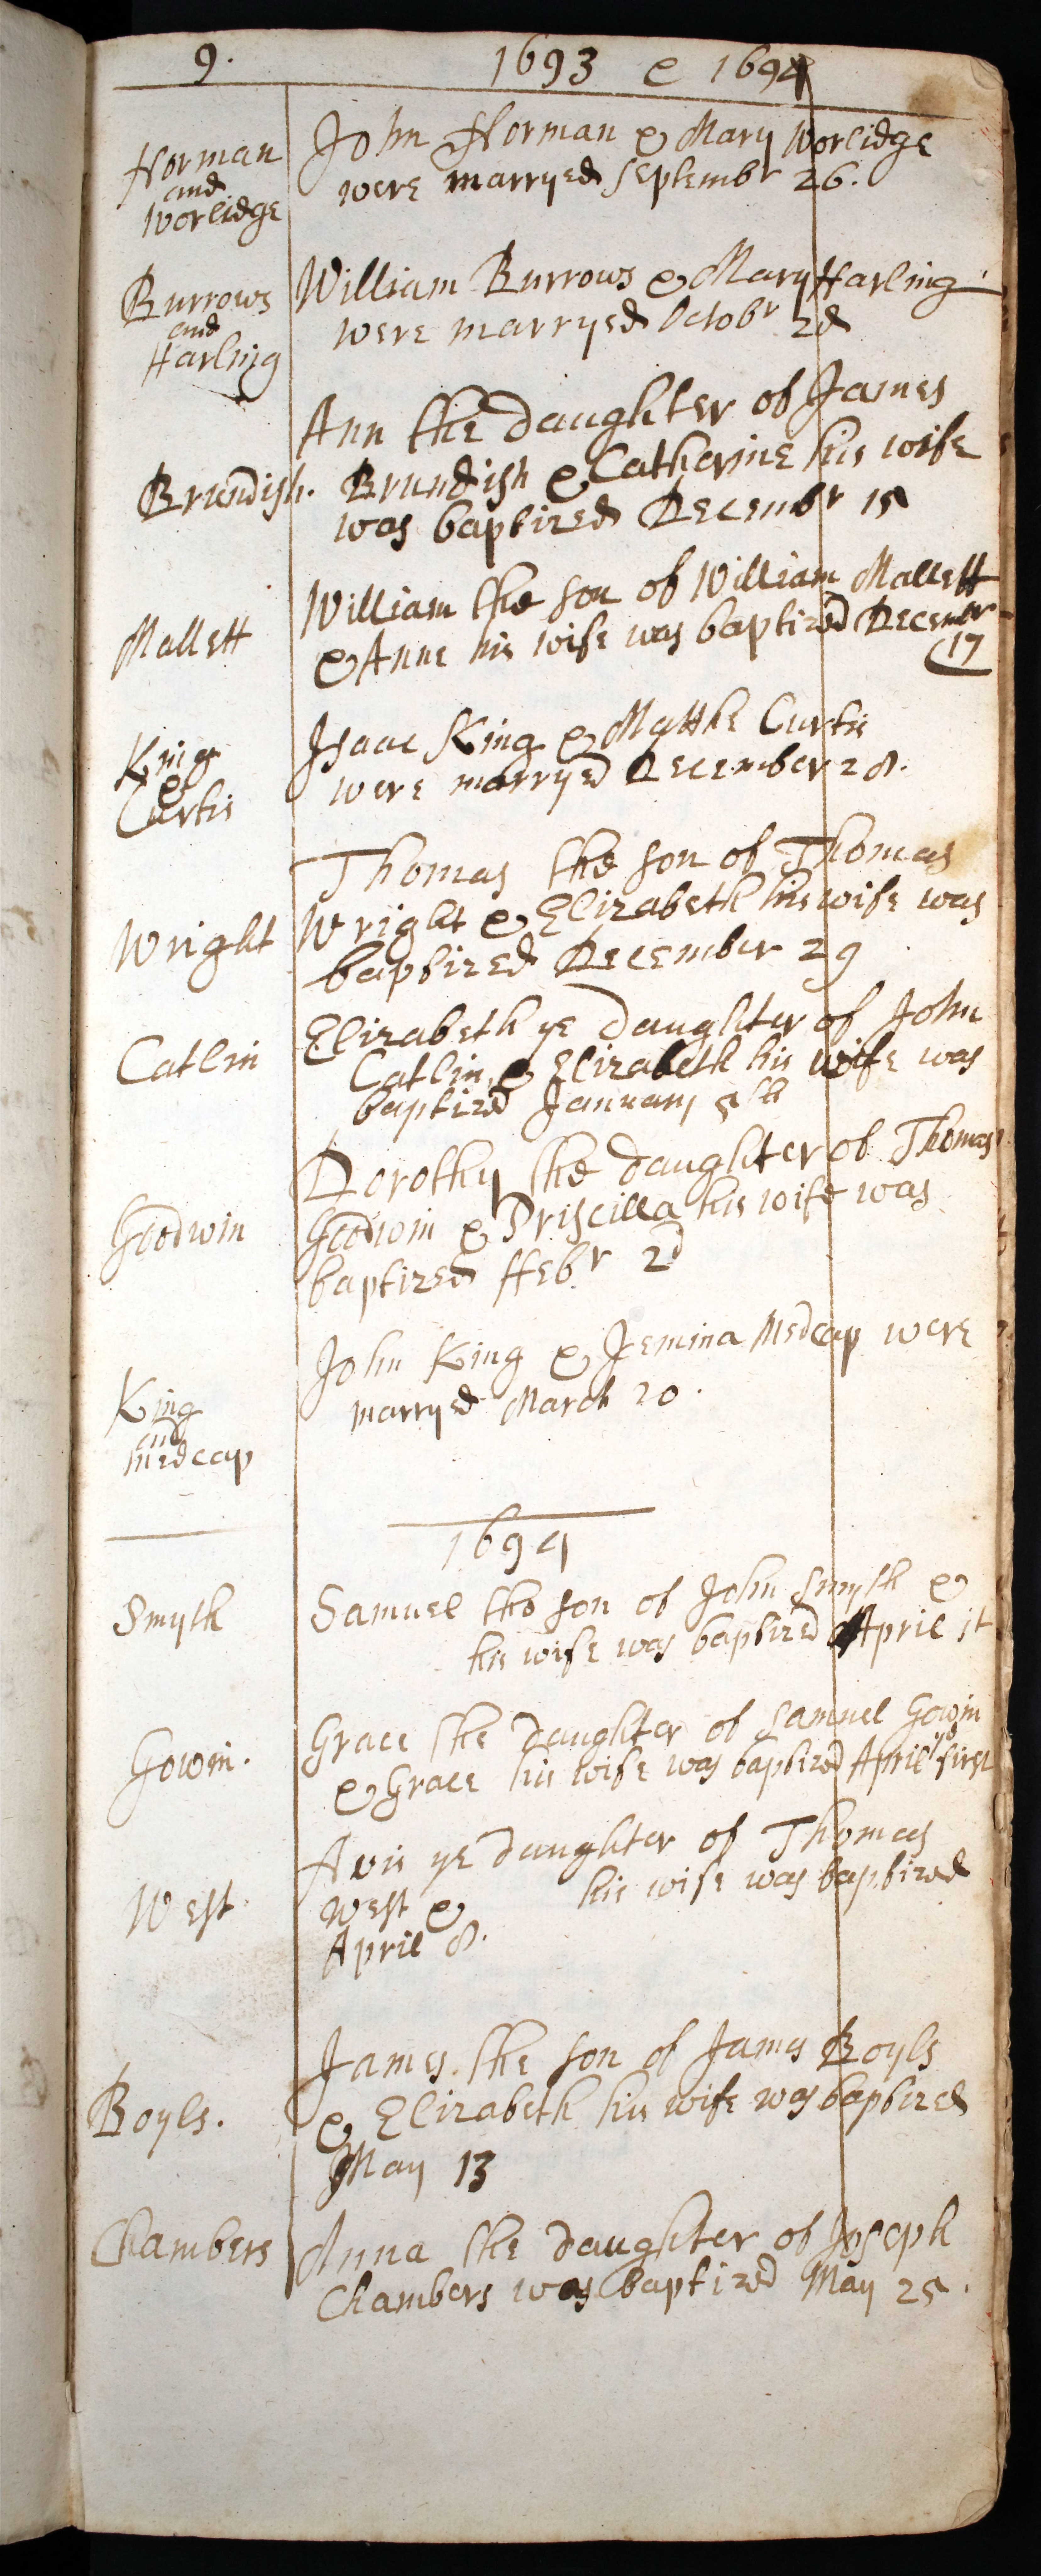 9. 1693 & 1694
Norman
and
Worlidge
John Norman & Mary Worlidge
were marryed Septembr 26.
Burrows
and
Harling
William Burrows & Mary Harling
were marryed Octobr 2d
Brundish.
Ann the daughter of James
Brundish & Catherine his wife
was baptized Decembr 15
Mallett
William the son of William Mallett
& Anne his wife was baptized Decembr
17
King
&
Curtis
Isaac King & Curtis
were marryed December 28.
Wright
Thomas the son of Thomas
Wright & Elizabeth his wife was
baptized December 29
Catlin
Elizabeth ye daughter of John
Catlin & Elizabeth his wife was
baptized January 5th
Goodwin
Dorothy the daughter of Thomas
Goodwin & Priscilla his wife was
baptized ffebr 2d
King
and
Medcap
John King & Jemina Medcap were
marryed March 20.
1694
Smyth
Samuel the son of John Smyth &
his wife was baptized April 1t
Gowin.
Grace the daughter of Samuel Gowin
& Grace his wife was baptized April ye first
West
Avis ye daughter of Thomas
West & his wife was baptized
April 8.
Boyls.
James the son of James Boyls
& Elizabeth his wife was baptized
May 13
Chambers
Anna the daughter of Joseph
Chambers was baptized May 25.